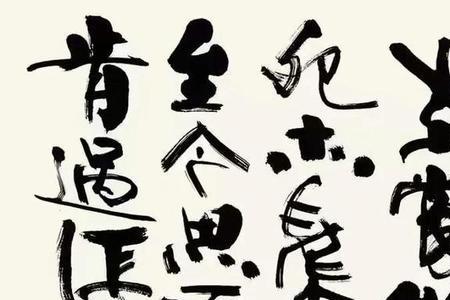 生當
死亦為
至今思
肯過江